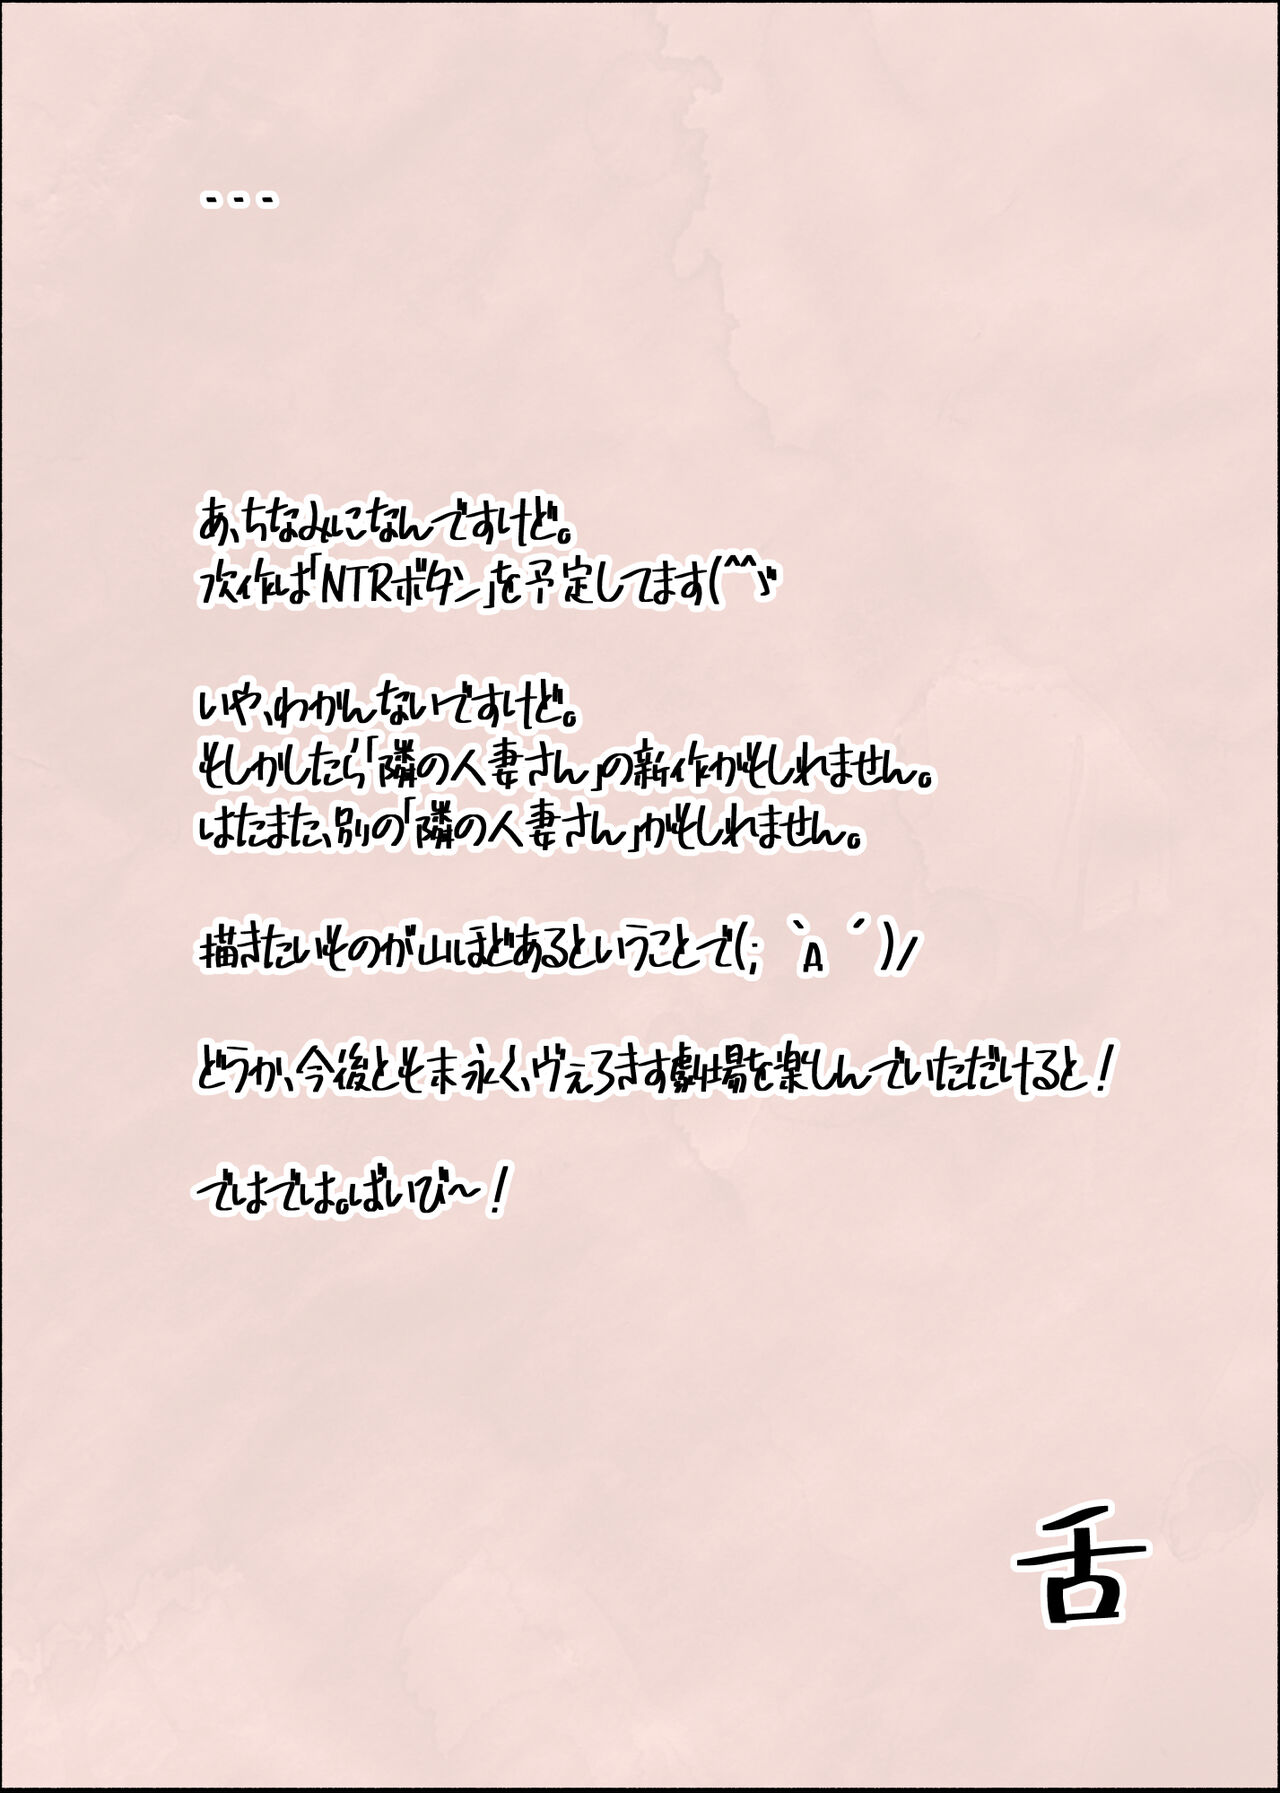 ---
あ、ちなみになんですけど。
次作は「NTRボタン」を予定してます(^^ゞ
いや、わかんないですけど。
もしかしたら「隣の人妻さん」の新作かもしれません。
はたまた、別の「隣の人妻さん」かもしれません。
描きたいものが山ほどあるということで(; ｀Д´)/
どうか、今後とも末永く、ヴぇろきす劇場を楽しんでいただけると!
ではでは。ばいび〜!
舌